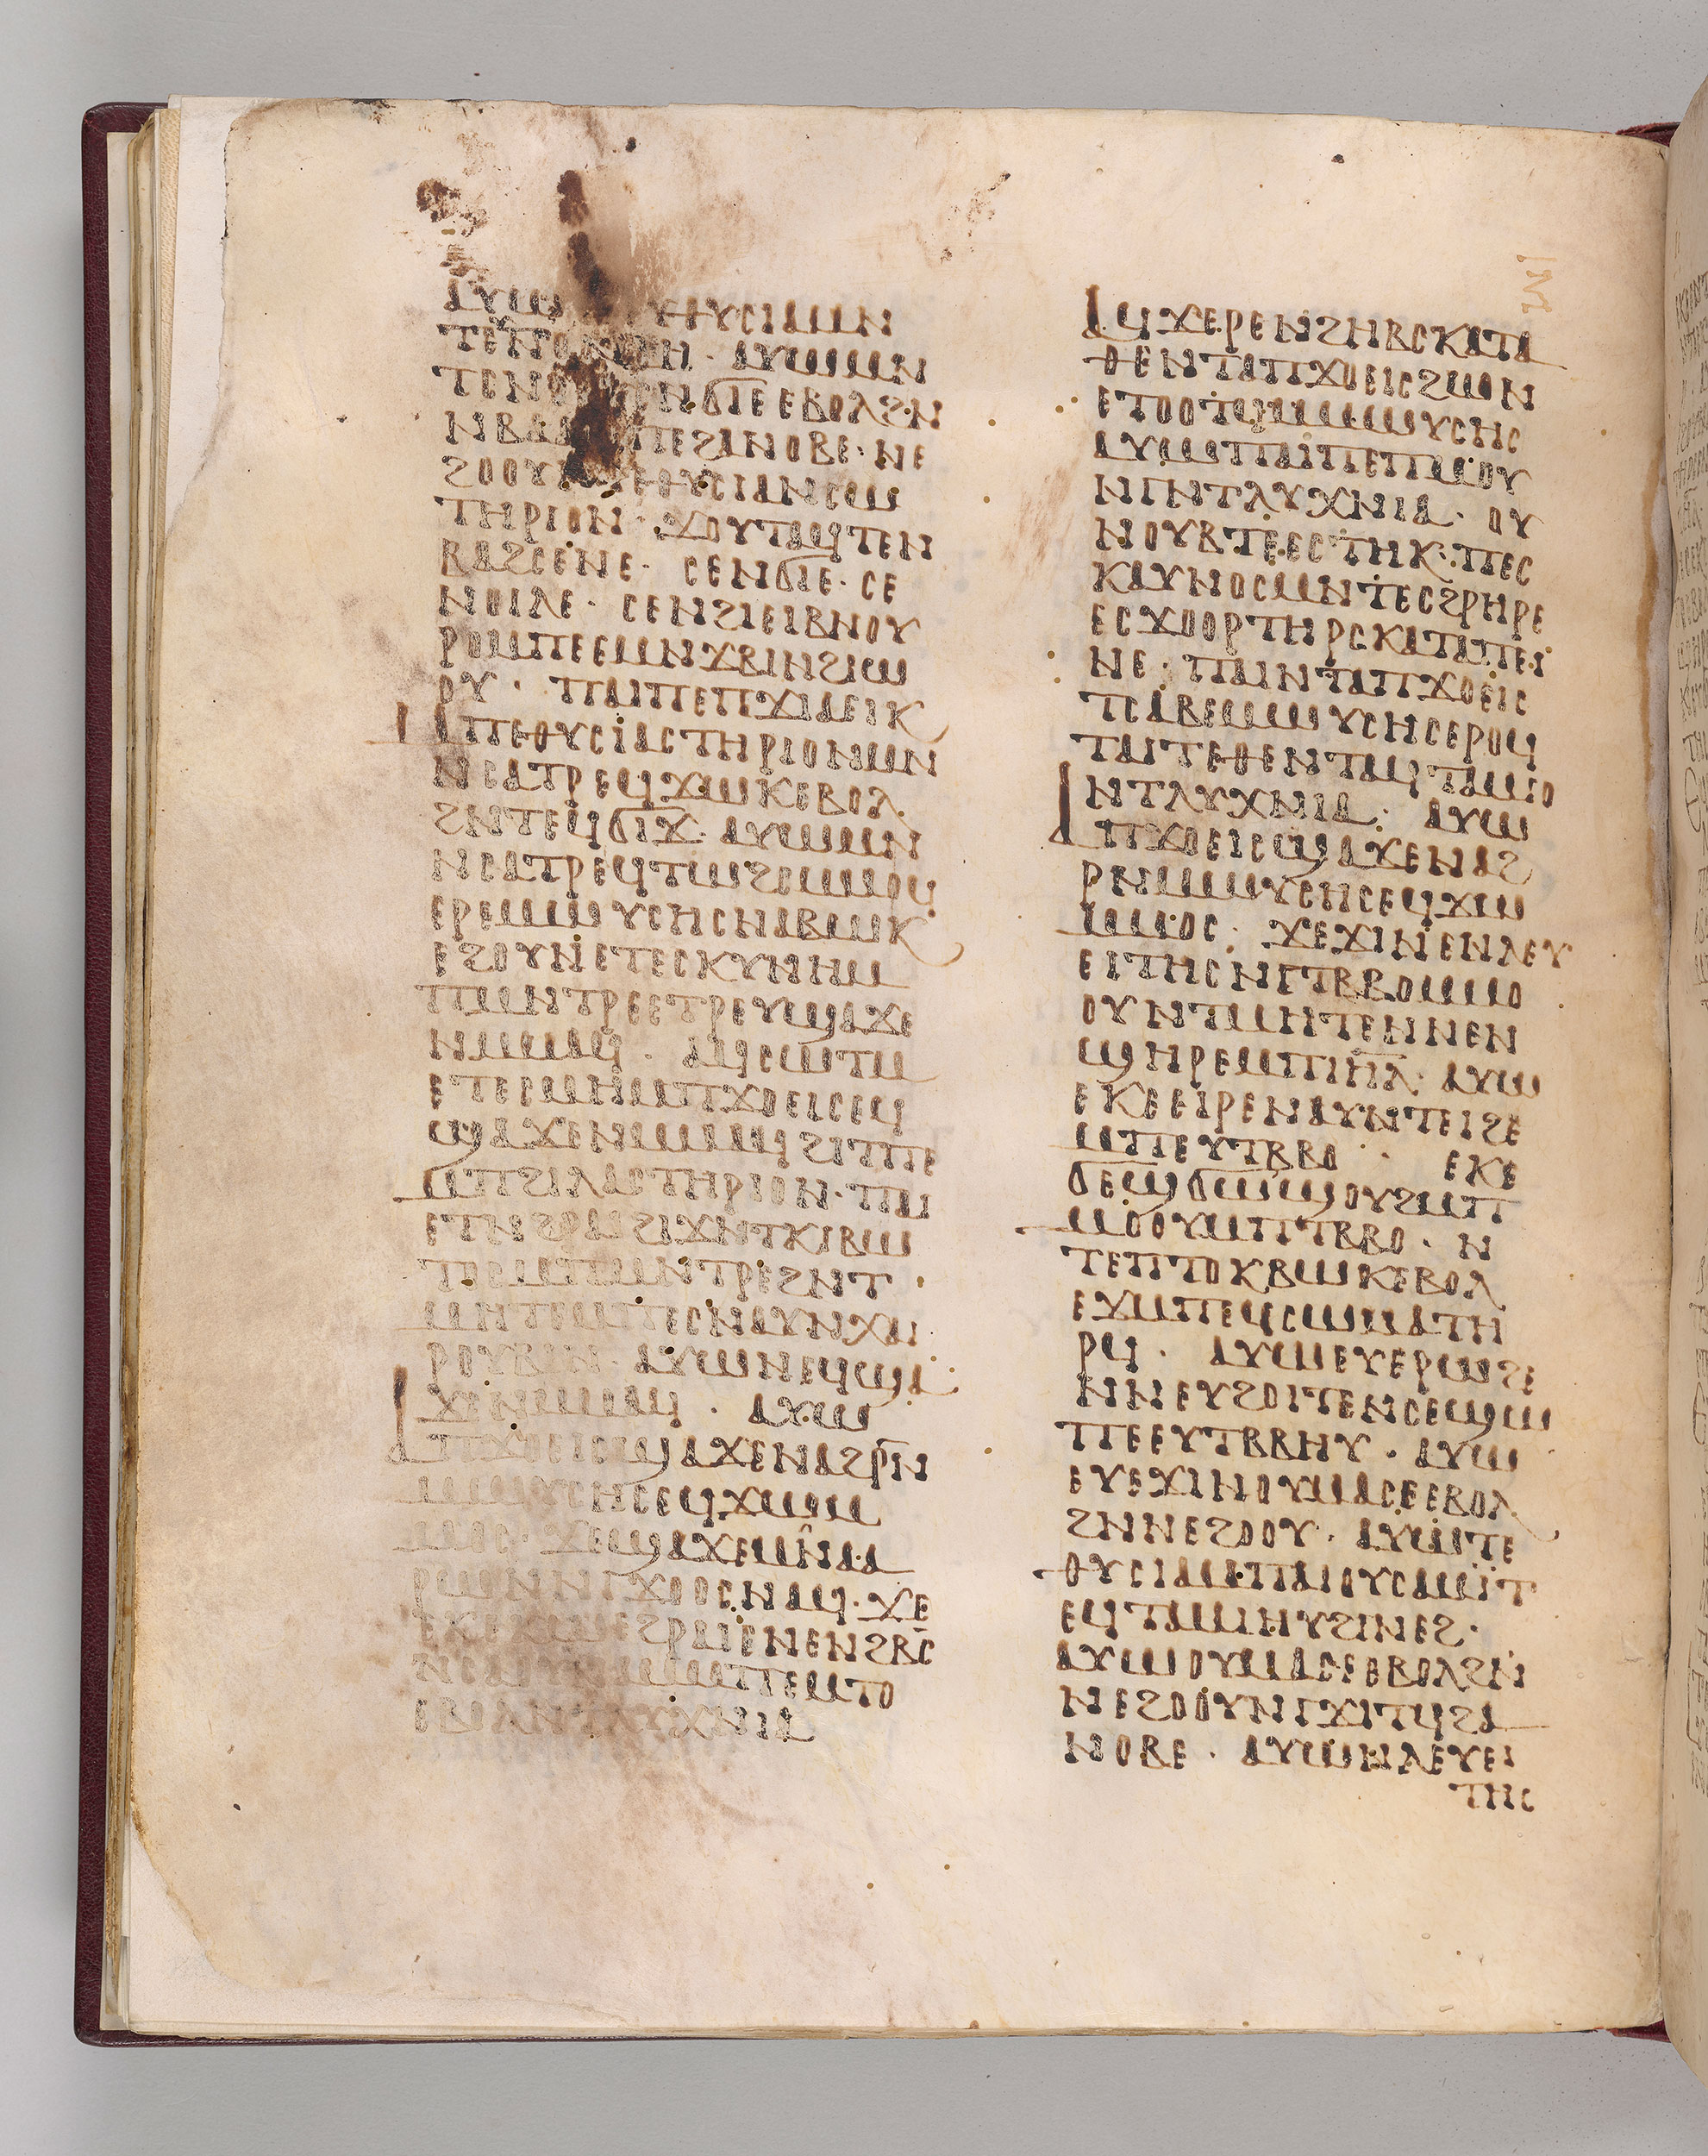 ⲁⲩⲱ ⲩⲑⲩⲥⲓⲁⲙⲛ
ⲁⲩⲱⲙⲛ
ⲉⲃⲟⲗϩⲛ
ⲡⲉϩⲁⲛⲟⲃⲉ· ⲛⲉ
ϩⲟⲟⲩ ⲑⲩⲥⲓⲁⲛⲥⲱ
ⲧⲏⲣⲓⲟⲛ· ϫⲟⲩⲧⲁϥⲧⲉⲛ
ⲃⲁϩⲥⲉⲛⲉ· ⲥⲉⲛϭⲓⲉ· ⲥⲉ
ⲛⲟⲓⲗⲉ· ⲥⲉⲛϩⲓⲉⲓⲃⲛⲟⲩ
ⲣⲟⲙⲡⲉⲉⲙⲛϫⲃⲓⲛϩⲓⲱ
ⲟⲩ· ⲡⲁⲓⲡⲉⲡϫⲓⲁⲉⲓⲕ
ⲙⲡⲉⲑⲩⲥⲓⲁⲥⲧⲏⲣⲓⲟⲛⲙⲛ
ⲛⲥⲁⲧⲣⲉϥϫⲱⲕⲉⲃⲟⲗ
ϩⲛⲧⲉϥϭⲓϫ· ⲁⲩⲱⲙⲛ
ⲛⲥⲁⲧⲣⲉϥⲧⲱϩⲥⲙⲙⲟϥ
ⲉⲣⲉⲙⲱⲩⲥⲏⲥⲛⲁⲃⲱⲕ
ⲉϩⲟⲩⲛⲉⲧⲉⲥⲕⲩⲛⲏⲙ
ⲡⲙⲛⲧⲣⲉⲉⲧⲣⲉⲩϣⲁϫⲉ
ⲛⲙⲙⲁϥ· ⲁϥⲥⲱⲧⲙ
ⲉⲧⲉⲥⲙⲏⲙⲡϫⲟⲉⲓⲥⲉϥ
ϣⲁϫⲉⲛⲙⲙⲁϥϩⲓⲧⲡⲉ
ⲙⲡϩⲓⲗⲁⲥⲧⲏⲣⲓⲟⲛ· ⲡⲁⲓ
ⲉⲧⲛϩⲣⲁⲓϩⲓϫⲛⲧⲕⲓⲃⲱ
ⲧⲟⲥⲙⲡⲙⲛⲧⲣⲉϩⲛⲧ
ⲙⲏⲧⲉⲙⲡⲉⲥⲛⲁⲩⲛⲭⲁⲓ
ⲣⲟⲩⲃⲓⲛ· ⲁⲩⲱⲛⲉϥϣⲁ
ϫⲉⲛⲙⲙⲁϥ· ⲁⲩⲱ
ⲁⲡϫⲟⲉⲓⲥϣⲁϫⲉⲛⲁϩⲣⲛ
ⲙⲱⲩⲥⲏⲥⲉϥϫⲱⲙ
ⲙⲟⲥ· ϫⲉϣⲁϫⲉⲙⲛⲁⲁ
ⲣⲱⲛⲛⲅϫⲟⲟⲥⲛⲁϥ· ϫⲉ
ⲉⲕϣⲁⲛⲕⲱⲉϩⲣⲁⲓⲉⲛⲉⲛϩⲃⲥ
ⲙⲡⲉⲙⲧⲟ
ⲉⲃⲟⲗⲛⲧⲗⲩⲭⲛⲓⲁ
ⲁϥϫⲉⲣⲉⲛϩⲏⲃⲥⲕⲁⲧⲁ
ⲑⲉⲛⲧⲁⲡϫⲟⲉⲓⲥϩⲱⲛ
ⲉⲧⲟⲟⲧϥⲙⲙⲱⲩⲥⲏⲥ
ⲁⲩⲱⲡⲁⲓⲡⲉⲡⲙⲟⲩ
ⲛⲅⲛⲧⲗⲩⲭⲛⲓⲁ· ⲟⲩ
ⲛⲟⲩⲃⲧⲉⲉⲥⲧⲏⲕ· ⲡⲉⲥ
ⲕⲁⲩⲛⲟⲥⲙⲛⲧⲉⲥϩⲣⲏⲣⲉ
ⲉⲥϫⲟⲟⲣⲧⲏⲣⲥⲕⲁⲧⲁⲡⲉⲓ
ⲛⲉ· ⲡⲁⲓⲛⲧⲁⲡϫⲟⲉⲓⲥ
ⲧⲥⲁⲃⲉⲙⲱⲩⲥⲏⲥⲉⲣⲟϥ
ⲧⲁⲓⲧⲉⲑⲉⲛⲧⲁϥⲧⲁⲙⲓⲟ
ⲛⲧⲗⲩⲭⲛⲓⲁ· ⲁⲩⲱ
ⲁⲡϫⲟⲉⲓⲥϣⲁϫⲉⲛⲁϩ
ⲣⲛⲙⲱⲩⲥⲏⲥⲉϥϫⲱ
ⲙⲙⲟⲥ· ϫⲉϫⲓⲛⲉⲛⲗⲉⲩ
ⲉⲓⲧⲏⲥⲛⲅⲧⲃⲃⲟⲙⲙⲟ
ⲟⲩⲛⲧⲙⲏⲧⲉⲛⲛⲉⲛ
ϣⲏⲣⲉⲙⲡⲓⲏⲗ· ⲁⲩⲱ
ⲉⲕⲉⲉⲓⲣⲉⲛⲁⲩⲛⲧⲉⲓϩⲉ
ⲙⲡⲉⲩⲧⲃⲃⲟ· ⲉⲕⲉ
ϭⲉϣϭⲱϣⲟⲩϩⲙⲡ
ⲙⲟⲟⲩⲙⲡⲧⲃⲃⲟ· ⲛ
ⲧⲉⲡⲧⲟⲕⲃⲱⲕⲉⲃⲟⲗ
ⲉϫⲙⲡⲉϥⲥⲱⲙⲁⲧⲏ
ⲣϥ· ⲁⲩⲱⲉⲩⲉⲣⲱϩⲉ
ⲛⲛⲉⲩϩⲟⲓⲧⲉⲛⲥⲉϣⲱ
ⲡⲉⲉⲩⲧⲃⲃⲏⲩ· ⲁⲩⲱ
ⲉⲩⲉϫⲓⲛⲟⲩⲙⲁⲥⲉⲉⲃⲟⲗ
ϩⲛⲛⲉϩⲟⲟⲩ· ⲁⲩⲱⲧⲉ
ⲑⲩⲥⲓⲁⲙⲡⲁⲓⲟⲩⲥⲁⲙⲓⲧ
ⲉϥⲧⲁⲙⲓⲏⲩϩⲓⲛⲉϩ·
ⲁⲩⲱⲟⲩⲙⲁⲥⲉⲉⲃⲟⲗϩⲛ
ⲛⲉϩⲟⲟⲩⲛⲅϫⲓⲧϥϩⲁ
ⲛⲟⲃⲉ· ⲁⲩⲱⲛⲗⲉⲩⲉⲓ
ⲧⲏⲥ